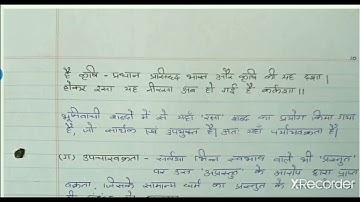 है कृषि - प्रधान प्रसिद्ध भारत और कृषि की यह दशा।
होकर रसा यह नीरसा अब हो गई है कर्कशा।।
भूमिवाची शब्दों में से यहाँ 'रसा' शब्द का प्रयोग किया गया
है, जो सार्थक एवं उपयुक्त है। अतः यहाँ पर्यायवक्रता है।
(ग) उपचारवक्रता - सर्वथा भिन्न स्वभाव वाले भी 'प्रस्तुत'
पर उस 'अप्रस्तुत' के आरोप द्वारा प्राप्त
वक्रता, जिसके सामान्य धर्म का प्रस्तुत के
XRecorder